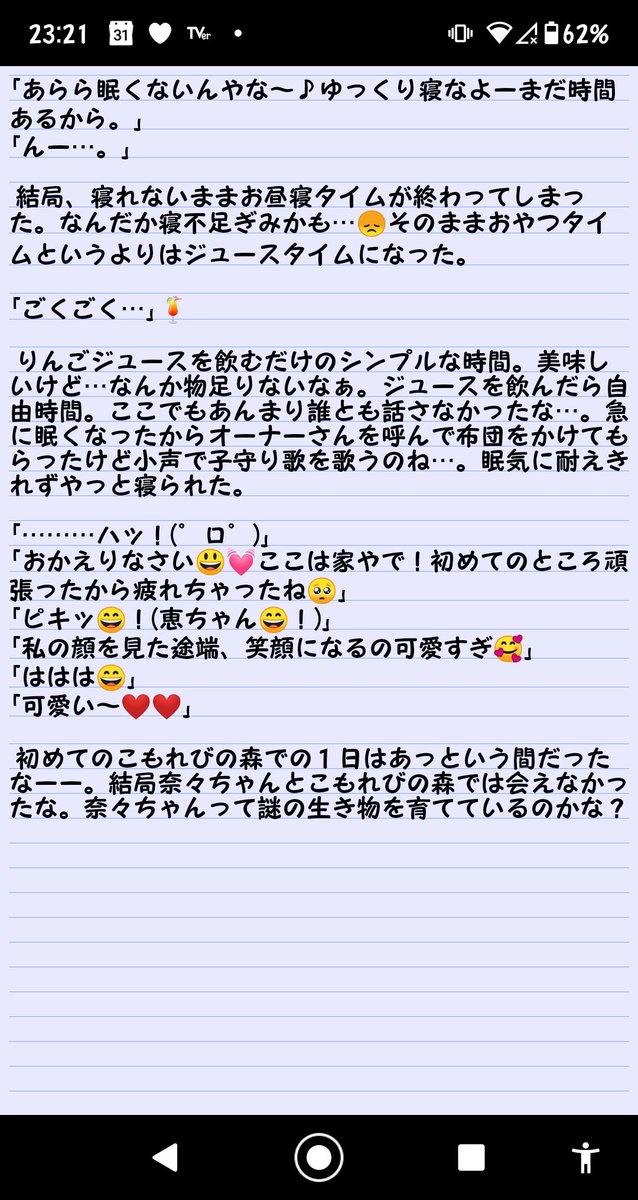 23:21 31 TVer 62%
「あらら眠くないんやな〜♪ゆっくり寝なよーまだ時間
あるから。」
「んー…。」
結局、寝れないままお昼寝タイムが終わってしまっ
た。なんだか寝不足ぎみかも…😞そのままおやつタイ
ムというよりはジュースタイムになった。
「ごくごく…」🍹
りんごジュースを飲むだけのシンプルな時間。美味し
いけど…なんか物足りないなぁ。ジュースを飲んだら自
由時間。ここでもあんまり誰とも話さなかったな…。急
に眠くなったからオーナーさんを呼んで布団をかけても
らったけど小声で子守り歌を歌うのね…。眠気に耐えき
れずやっと寝られた。
「………ハッ！(゜ロ゜)」
「おかえりなさい😃💓ここは家やで！初めてのところ頑
張ったから疲れちゃったね🥺」
「ピキッ😄！(恵ちゃん😄！)」
「私の顔を見た途端、笑顔になるの可愛すぎ🥰」
「ははは😄」
「可愛い〜❤️❤️」
初めてのこもれびの森での１日はあっという間だった
なーー。結局奈々ちゃんとこもれびの森では会えなかっ
たな。奈々ちゃんって謎の生き物を育てているのかな？